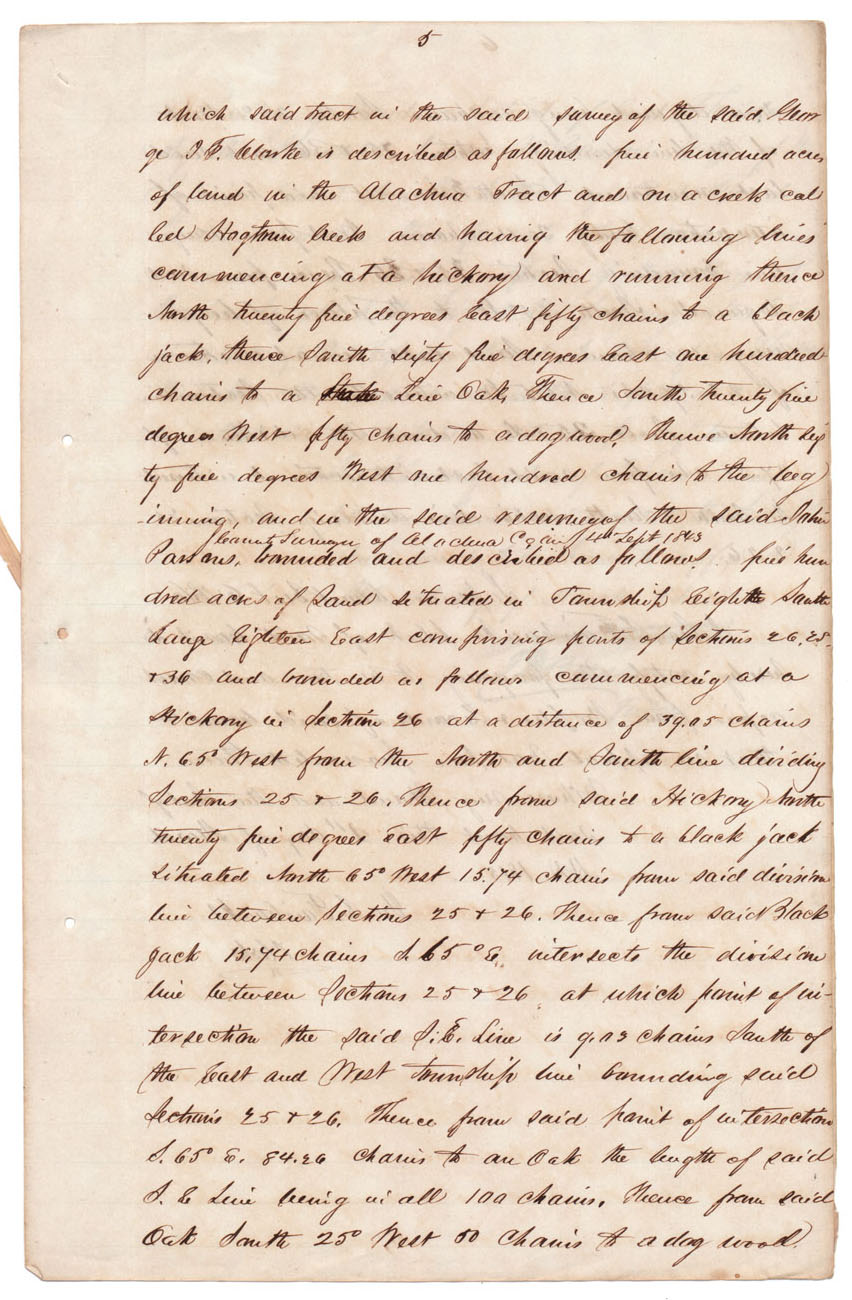 5
which said tract in the said survey of the said Geor
ge I F. Clarke is described as follows. five hundred acres
of land in the Alachua Tract and on a creek cal
led Hogtown Creek and having the following lines
commencing at a hickory and running thence
North twenty five degrees East fifty chains to a black
jack, thence South sixty five degrees East one hundred
chains to a Live Oak, Thence South twenty five
degrees West fifty chains to a dogwood, Thence North six
ty five degrees West one hundred chains to the beg
inning, and in the said resurvey of the said John
County Surveyor of Alachua Co. 4th Sept 1843
Parsons, bounded and described as follows. five hun
dred acres of Land situated in Township Eight South
Range Eighteen East comprising parts of Sections 26, 25,
& 36 and bounded as follows commencing at a
Hickory in Section 26 at a distance of 39.05 chains
N. 65° West from the North and South line dividing
Sections 25 & 26. Thence from said Hickory North
twenty five degrees East fifty chains to a black jack
situated North 65° West 15.74 chains from said division
line between Sections 25 & 26. Thence from said Black
jack 15.74 chains S. 65° E. intersects the division
line between Sections 25 & 26 at which point of in-
tersection the said S. E. Line is 9.03 chains South of
the East and West Township line bounding said
Sections 25 & 26. Thence from said point of intersection
S. 65° E. 84.26 chains to an Oak the length of said
S. E Line being in all 100 chains. Thence from said
Oak South 25° West 50 chains to a dog wood.